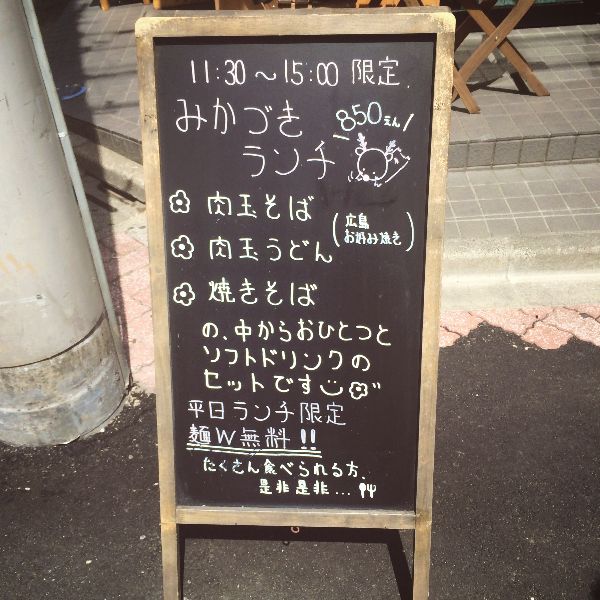 11:30～15:00 限定.
みかづき
850えん!
ランチ
肉玉そば
肉玉うどん
(広島
お好み焼き)
焼きそば
の、中からおひとつと
ソフトドリンクの
セットです
平日ランチ限定
麺W無料!!
たくさん食べられる方、
是非是非...